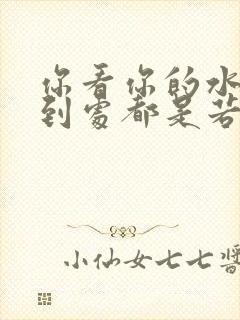 你看你的水
到處都是若
小仙女七七醬